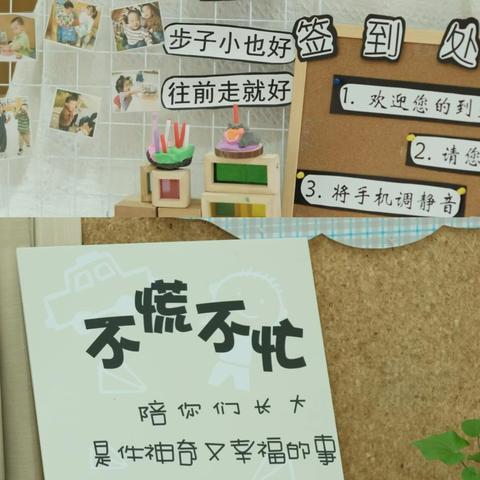 步子小也好
往前走就好
签到处
1. 欢迎您的到
2. 请您
3. 将手机调静音
不慌不忙
陪你们长大
是件神奇又幸福的事